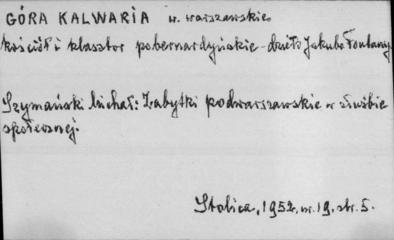 GÓRA KALWARIA w. warszawskie
kościół i klasztor pobernardyńskie - dzieło Jakuba Fontany
Szymański Michał: Zabytki podwarszawskie w służbie
społecznej.
Stolica, 1952, nr. 19, str. 5.